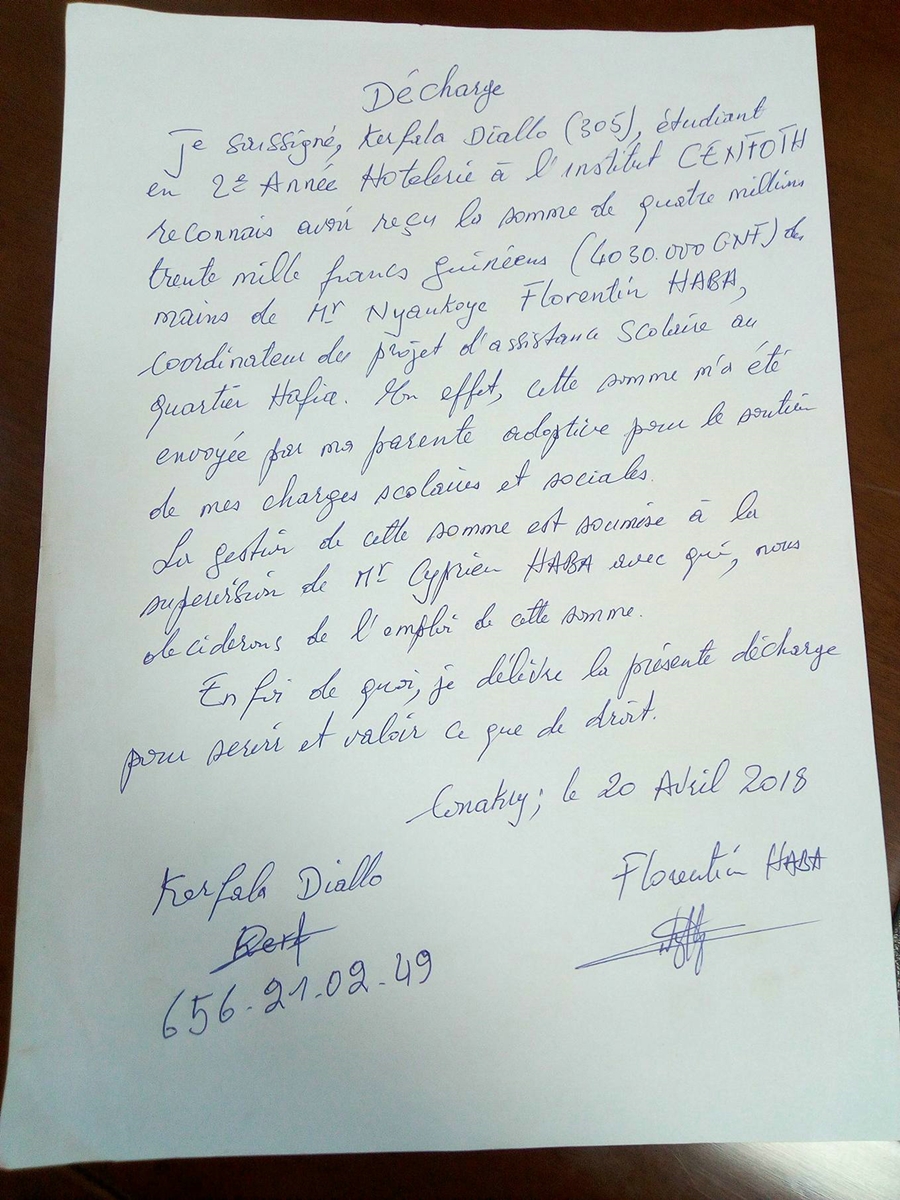 Décharge
Je soussigné, Kerfala Diallo (305), étudiant
en 2e Année Hotelerie à l'institut CENFOTH
reconnais avoir reçu la somme de quatre millions
trente mille francs guinéens (4030.000 GNF) des
mains de Mr Nyankoye Florentin HABA,
Coordinateur du projet d'assistance scolaire au
quartier Hafia. En effet, cette somme m'a été
envoyée par ma parente adoptive pour le soutien
de mes charges scolaires et sociales.
La gestion de cette somme est soumise à la
supervision de Mr Cyprien HABA avec qui, nous
deciderons de l'emploi de cette somme.
En foi de quoi, je délivre la présente décharge
pour servir et valoir ce que de droit.
Conakry; le 20 Avril 2018
Kerfala Diallo Florentin HABA
Kerf
656-21-02-49